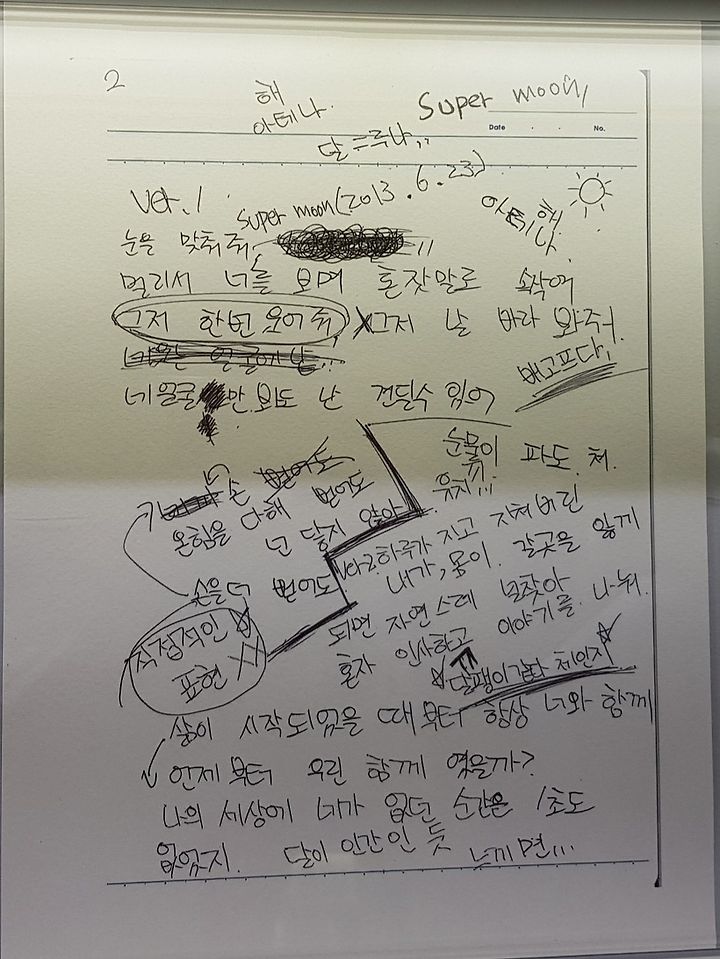 2
해
아테나
Super moon,
Date . . No.
달 =루나,,
Ver.1
Super moon(2013.6.23)
아테나 해
눈을 맞춰줘, ,,
멀리서 너를 보며 혼잣말로 속삭여
그저 한번 웃어줘, X그저 날 바라 봐줘.
배고프다;
네얼굴 만 봐도 난 견딜수 있어
눈물이 파도.쳐.
유치,,,
손 뻗어도
온힘을 다해 뻗어도
넌 닿지 않아
손을더 뻗어도
직접적인
표현 XX
Ver2.하루가 지고 지쳐버린
내가, 몽이. 갈곳을 잃게
되면 자연스레 널찾아
혼자 인사하고 이야기를 나눠.
달팽이같다 체인지
삶이 시작되었을 때부터 항상 너와 함께
언제부터 우린 함께 였을까?
나의 세상에 네가 없던 순간은 1초도
없었지. 달이 인간인 듯 느끼면...